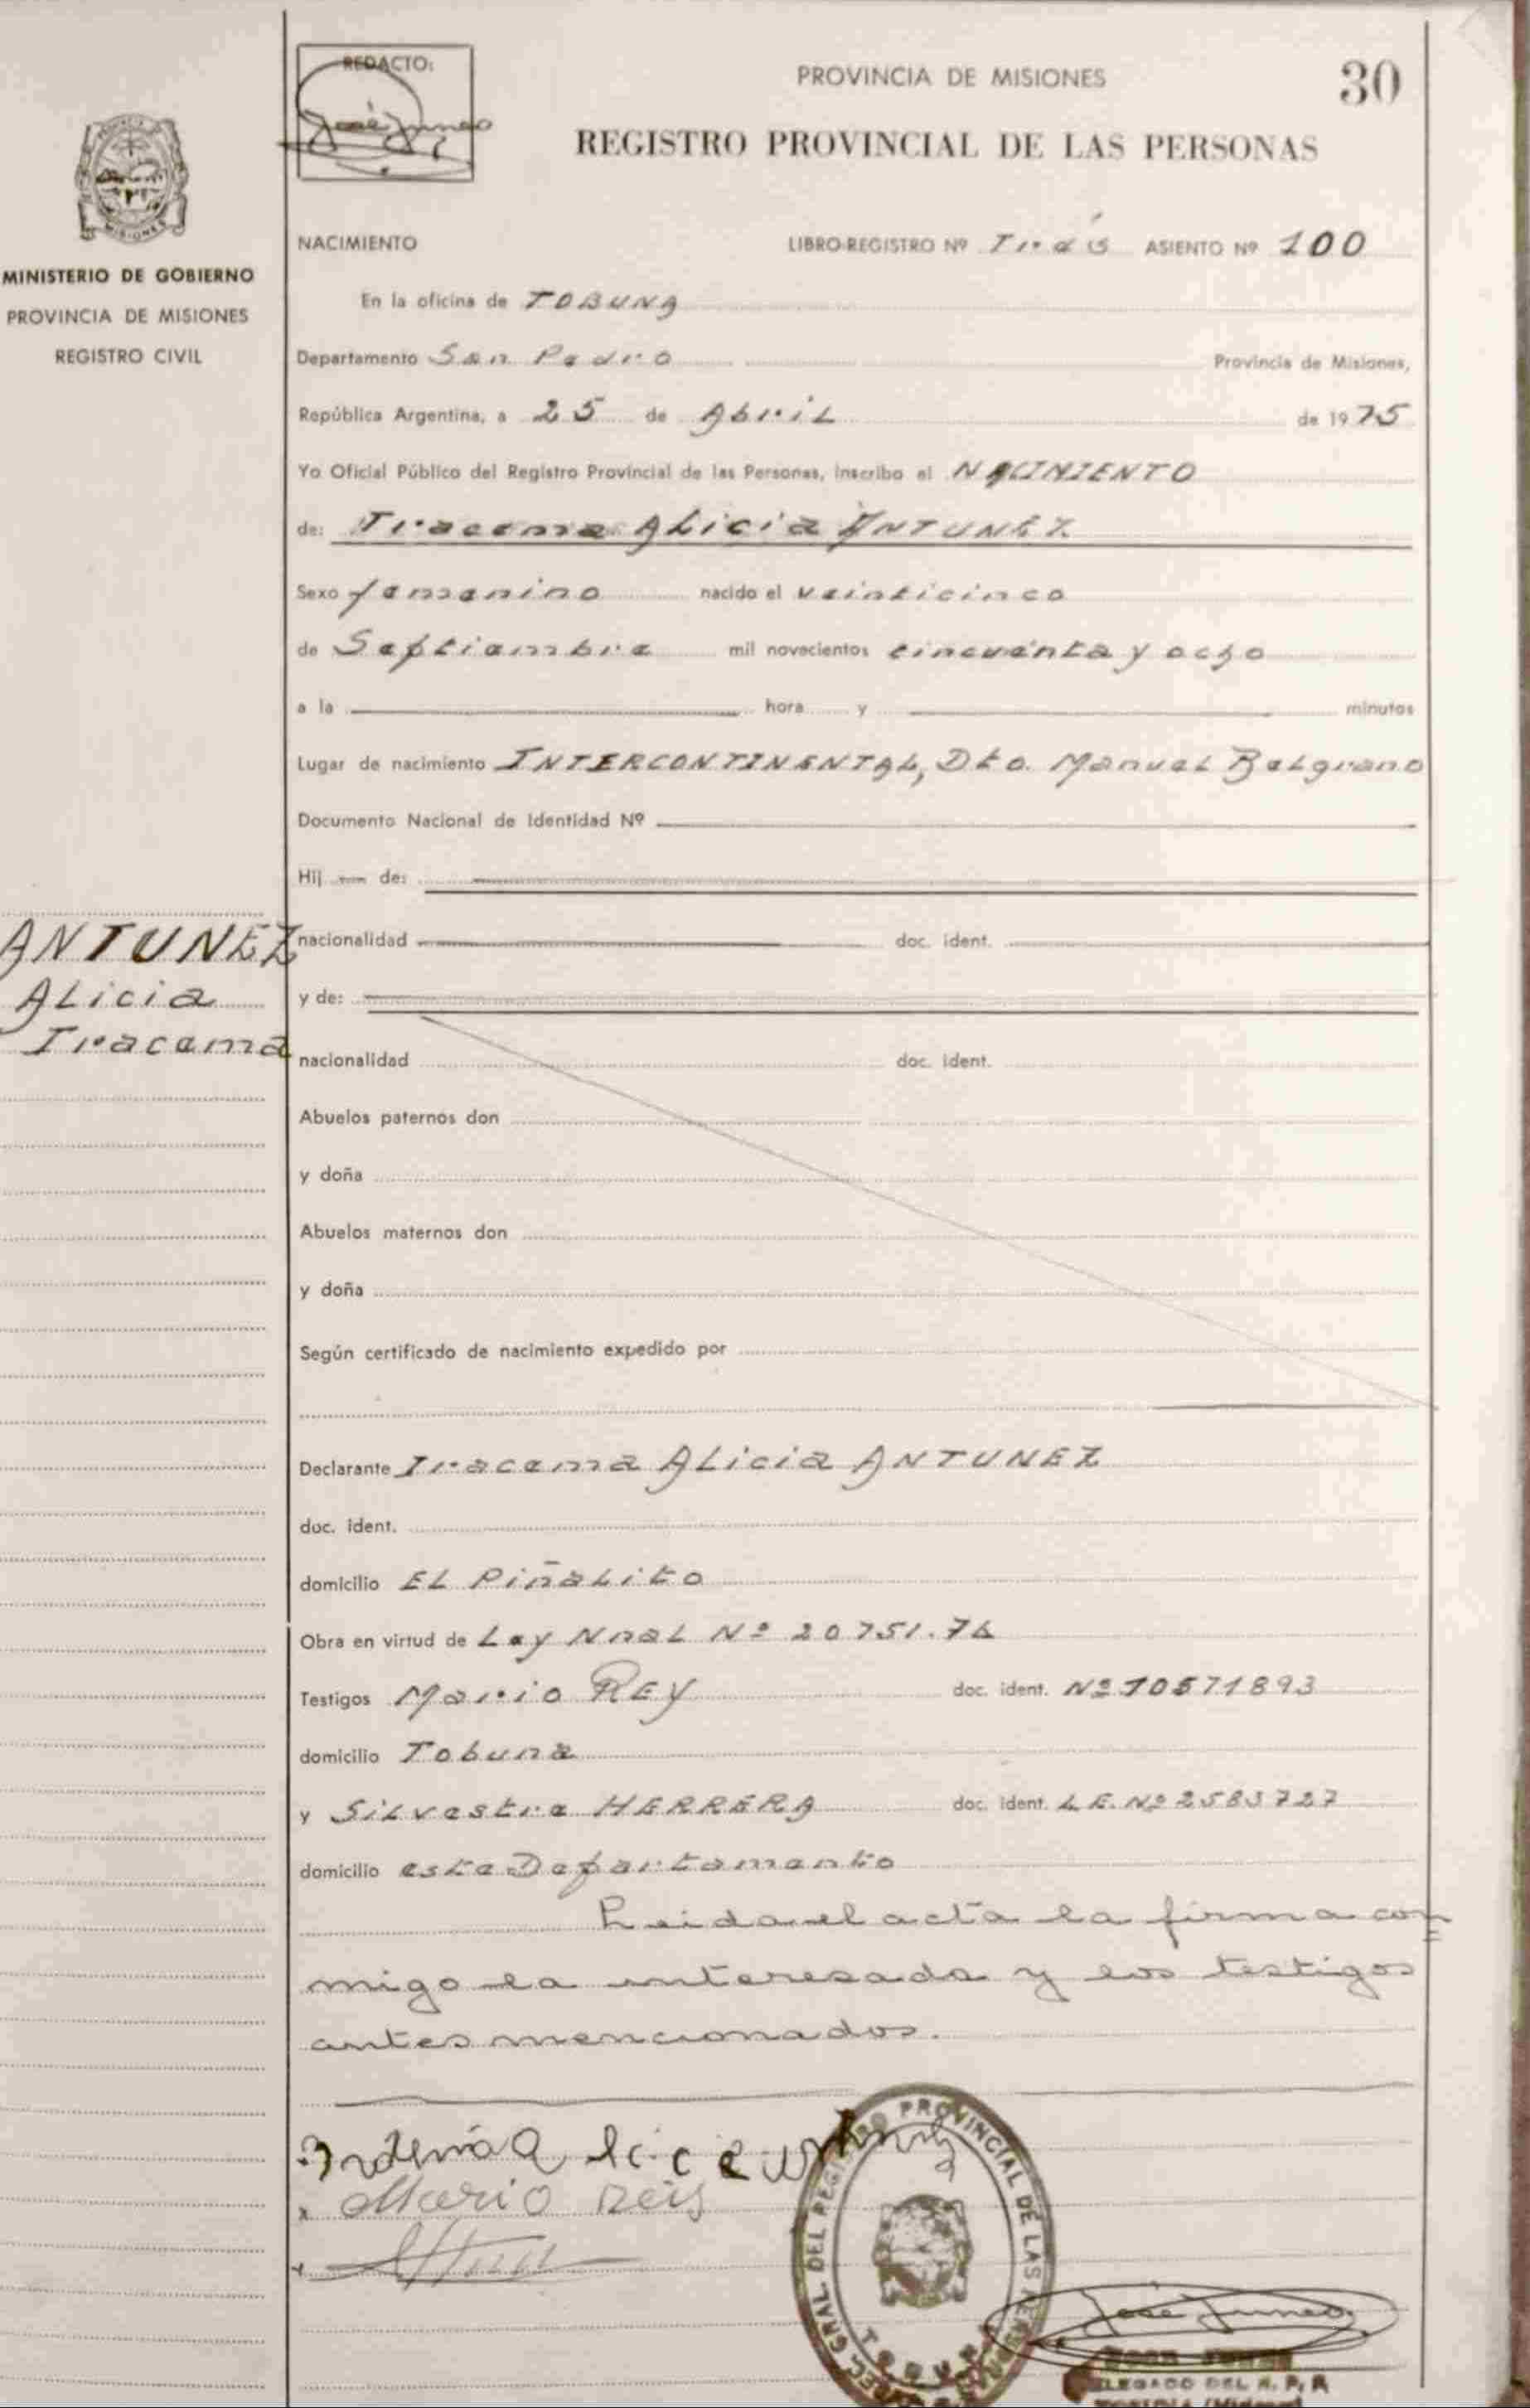 REDACTO:
PROVINCIA DE MISIONES
30
REGISTRO PROVINCIAL DE LAS PERSONAS
MISIONES
MINISTERIO DE GOBIERNO
PROVINCIA DE MISIONES
REGISTRO CIVIL
NACIMIENTO LIBRO-REGISTRO Nº ASIENTO Nº 100
En la oficina de TOBUNA
Departamento San Pedro Provincia de Misiones,
República Argentina, a 25 de Abril de 1975
Yo Oficial Público del Registro Provincial de las Personas, inscribo el NACIMIENTO
de: Iracema ALicia ANTUNEZ
Sexo femenino nacido el veinticinco
de Septiembre mil novecientos cincuenta y ocho
a la hora y minutos
Lugar de nacimiento INTERCONTINENTAL, Dto. Manuel Belgrano
Documento Nacional de Identidad Nº
Hij de:
nacionalidad doc. ident.
y de:
nacionalidad doc. ident.
Abuelos paternos don
y doña
Abuelos maternos don
y doña
Según certificado de nacimiento expedido por
ANTUNEZ
ALicia
Iracema
Declarante Iracema ALicia ANTUNEZ
doc. ident.
domicilio EL PiñaLito
Obra en virtud de Ley NnaL Nº 20751.74
Testigos Mario REY doc. ident. Nº 10571893
domicilio Tobuna
y SiLvestre HERRERA doc. ident. L.E. Nº 2583727
domicilio este Departamento
Leida el acta la firma con
migo la interesada y los testigos
antes mencionados.
Mario Reis
GRAL DEL REGISTRO PROVINCIAL DE LAS PERSONAS
TOBUNA
José Junco
DELEGADO DEL R. P. P.